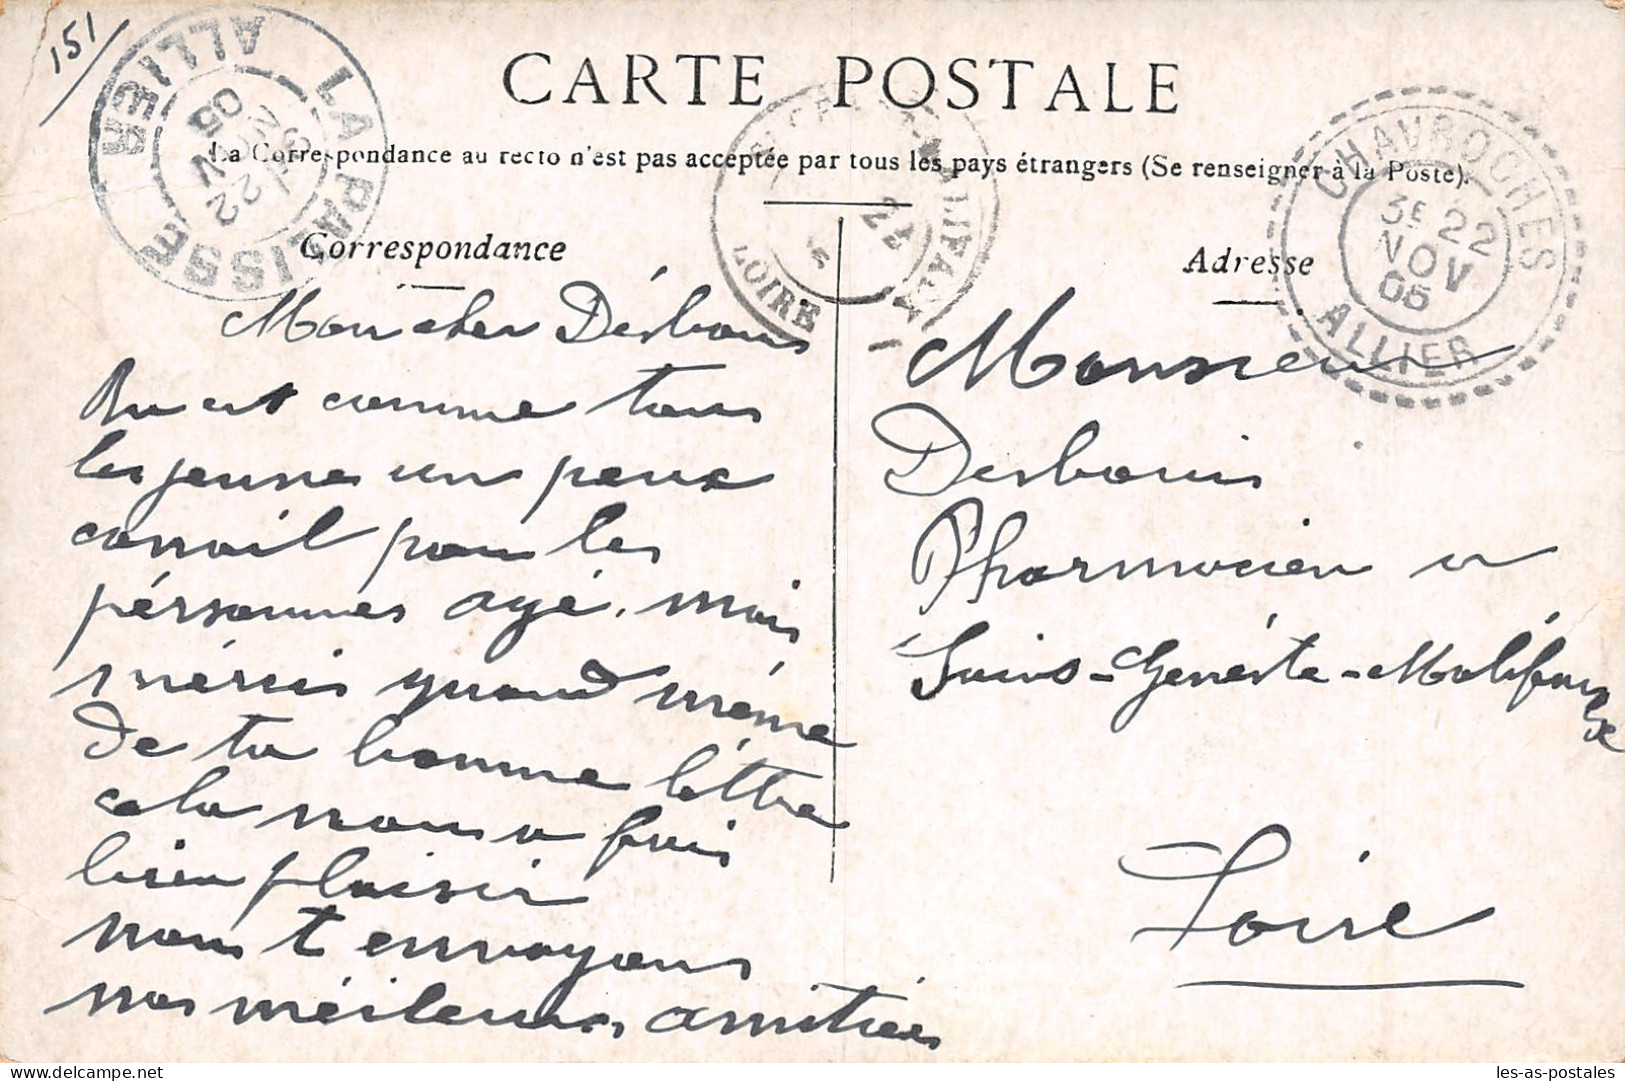 151
CARTE POSTALE
La Correspondance au recto n'est pas acceptée par tous les pays étrangers (Se renseigner à la Poste).
LAPALISSE
ALLIER
22
NOV
05
LOIRE
22
CHAVROCHES
3E 22
NOV
05
ALLIER
Correspondance
Mon cher Desbouis
tu est comme tous
les jeunes un peux
canail pour les
pérsonnes agé. mais
mérçis quand même
de ta bonne léttre
cela nous a fais
bien plaisir
nous t envoyons
nos méileures amitiées
Adresse
Monsieur
Desbouis
Pharmacien a
Saint-Genéste-Malifaux
Loire
les-as-postales